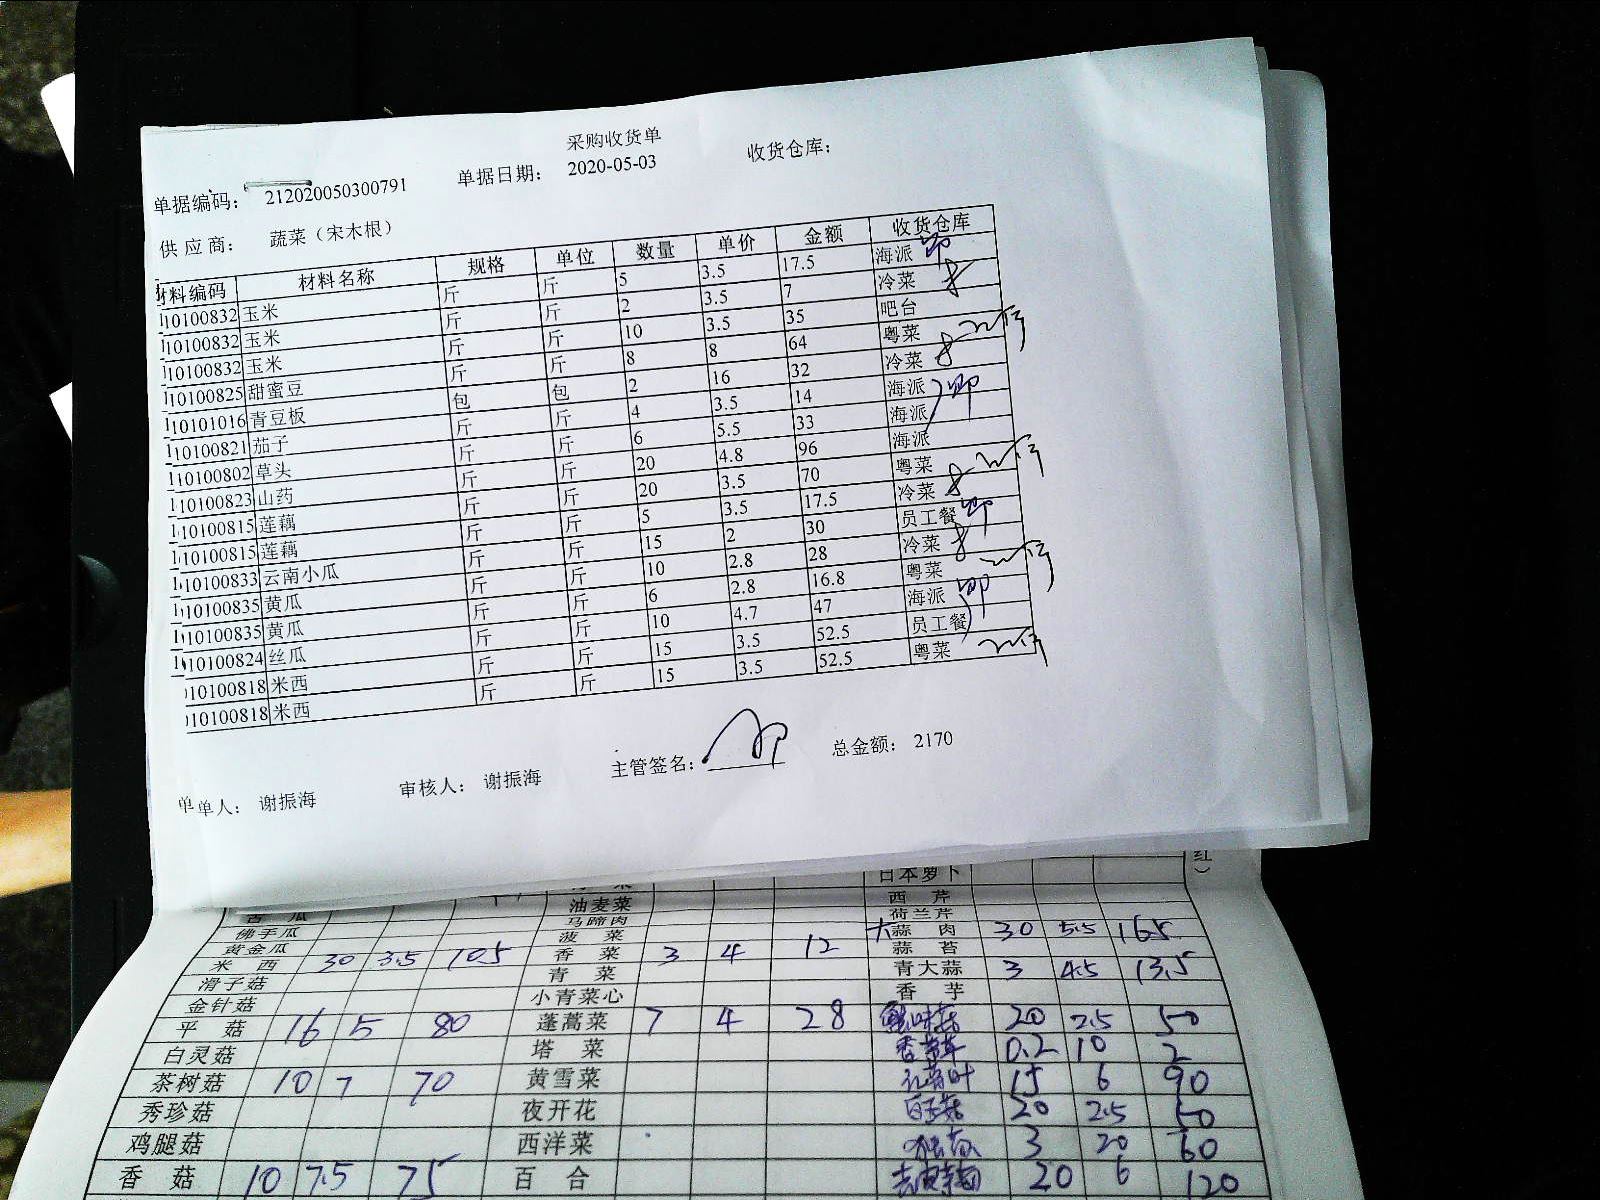 采购收货单
单据编码： 212020050300791 单据日期： 2020-05-03 收货仓库：
供 应 商： 蔬菜（宋木根）
材料编码 材料名称 规格 单位 数量 单价 金额 收货仓库
10100832 玉米 斤 斤 5 3.5 17.5 海派
10100832 玉米 斤 斤 2 3.5 7 冷菜
10100832 玉米 斤 斤 10 3.5 35 吧台
10100825 甜蜜豆 斤 斤 8 8 64 粤菜
10101016 青豆板 包 包 2 16 32 冷菜
10100821 茄子 斤 斤 4 3.5 14 海派
10100802 草头 斤 斤 6 5.5 33 海派
10100823 山药 斤 斤 20 4.8 96 海派
10100815 莲藕 斤 斤 20 3.5 70 粤菜
10100815 莲藕 斤 斤 5 3.5 17.5 冷菜
10100833 云南小瓜 斤 斤 15 2 30 员工餐
10100835 黄瓜 斤 斤 10 2.8 28 冷菜
10100835 黄瓜 斤 斤 6 2.8 16.8 粤菜
10100824 丝瓜 斤 斤 10 4.7 47 海派
10100818 米西 斤 斤 15 3.5 52.5 员工餐
10100818 米西 斤 斤 15 3.5 52.5 粤菜
单人： 谢振海 审核人： 谢振海 主管签名： 总金额： 2170
红）
日本萝卜
苦 瓜 油麦菜 西 芹
佛手瓜 马蹄肉 荷兰芹
黄金瓜 菠 菜 大蒜 肉 30 5.5 165
米 西 30 3.5 105 香 菜 3 4 12 蒜 苔
滑子菇 青 菜 青大蒜 3 4.5 13.5
金针菇 小青菜心 香 芋
平 菇 16 5 80 蓬蒿菜 7 4 28 蟹味菇 20 2.5 50
白灵菇 塔 菜 香茅草 0.2 10 2
茶树菇 10 7 70 黄雪菜 15 6 90
秀珍菇 夜开花 白玉菇 20 2.5 50
鸡腿菇 西洋菜 3 20 60
香 菇 10 7.5 75 百 合 20 6 120